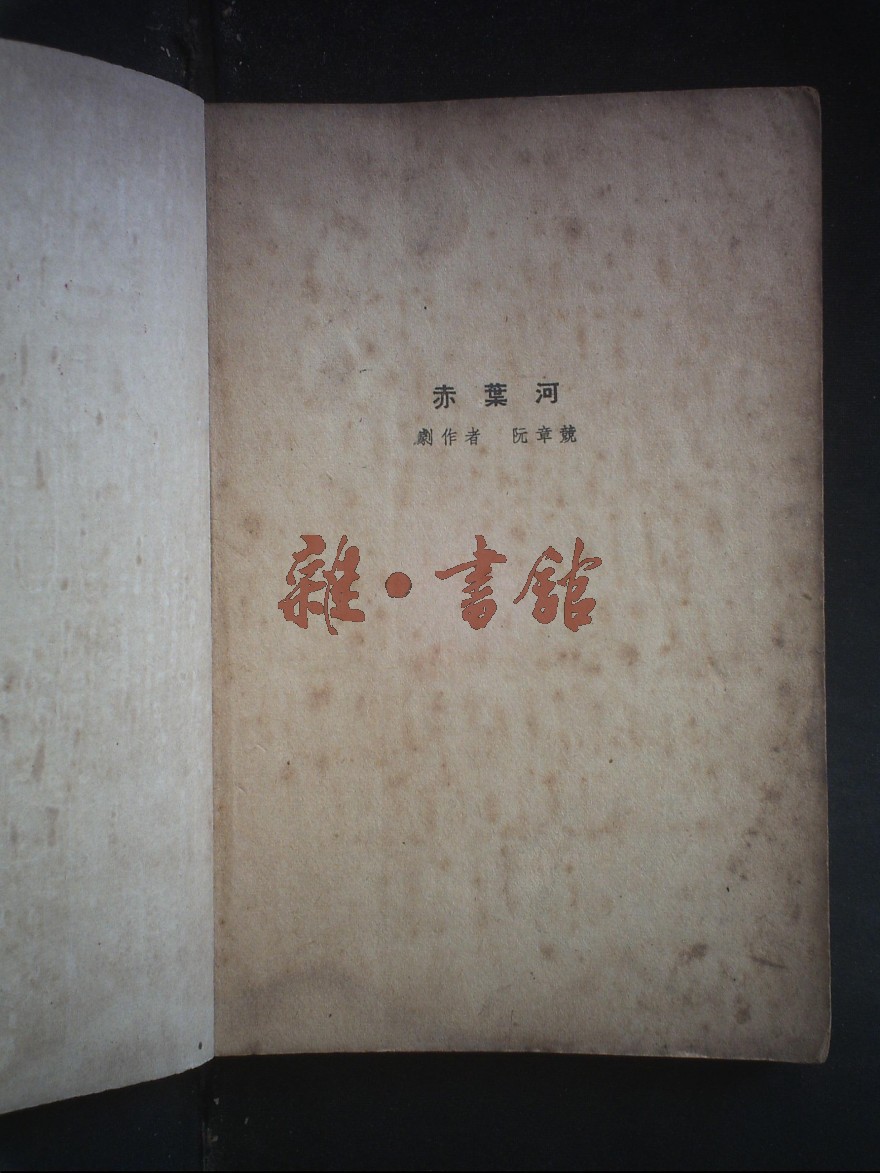 赤葉河
劇作者 阮章競
雜·書館